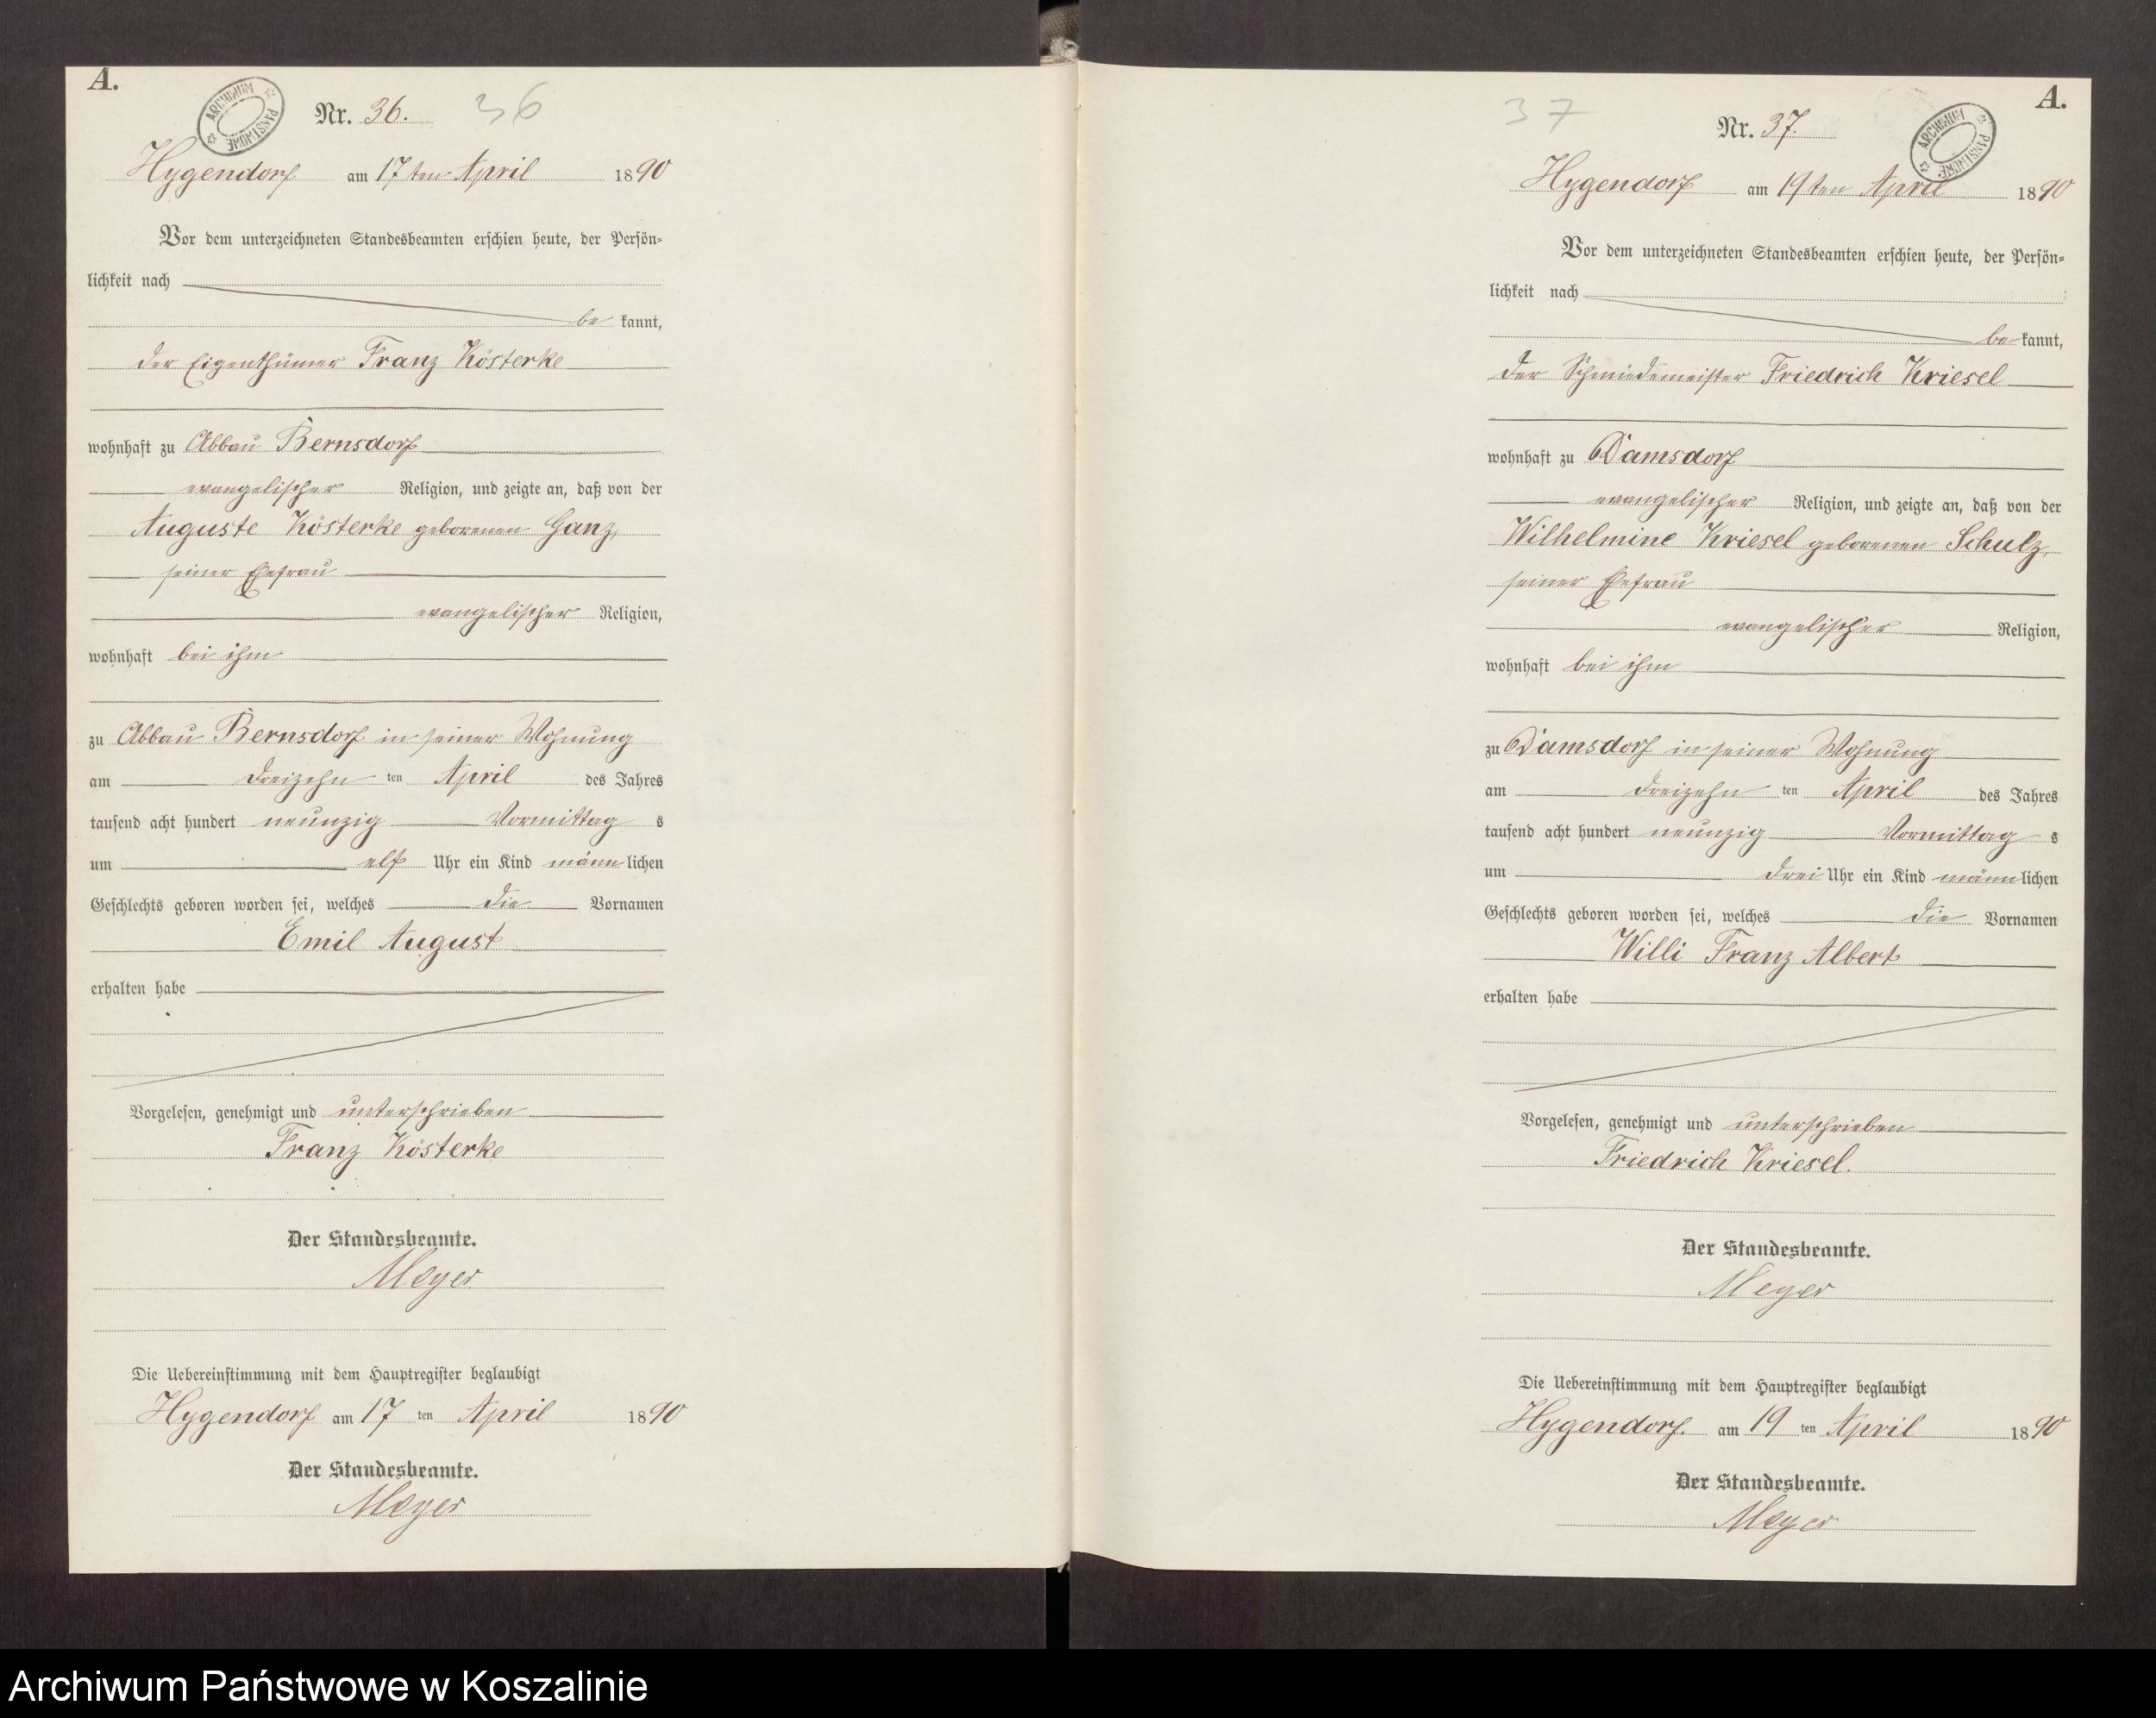 A.
ARCHIWUM PAŃSTWOWE
Nr. 36. 36
Hygendorf am 17ten April 1890
Vor dem unterzeichneten Standesbeamten erschien heute, der Persön=
lichkeit nach
be kannt,
der Eigenthümer Franz Kösterke
wohnhaft zu Abbau Bernsdorf
evangelischer Religion, und zeigte an, daß von der
Auguste Kösterke geborenen Ganz,
seiner Ehefrau
evangelischer Religion,
wohnhaft bei ihm
zu Abbau Bernsdorf in seiner Wohnung
am dreizehn ten April des Jahres
tausend acht hundert neunzig Vormittag s
um elf Uhr ein Kind männ lichen
Geschlechts geboren worden sei, welches die Vornamen
Emil August
erhalten habe
Vorgelesen, genehmigt und unterschrieben
Franz Kösterke
Der Standesbeamte.
Meyer
Die Uebereinstimmung mit dem Hauptregister beglaubigt
Hygendorf am 17 ten April 1890
Der Standesbeamte.
Meyer
A.
37 Nr. 37.
ARCHIWUM PAŃSTWOWE
Hygendorf am 19ten April 1890
Vor dem unterzeichneten Standesbeamten erschien heute, der Persön=
lichkeit nach
be kannt,
der Schmiedemeister Friedrich Kriesel
wohnhaft zu Damsdorf
evangelischer Religion, und zeigte an, daß von der
Wilhelmine Kriesel geborenen Schulz,
seiner Ehefrau
evangelischer Religion,
wohnhaft bei ihm
zu Damsdorf in seiner Wohnung
am dreizehn ten April des Jahres
tausend acht hundert neunzig Vormittag s
um drei Uhr ein Kind männ lichen
Geschlechts geboren worden sei, welches die Vornamen
Willi Franz Albert
erhalten habe
Vorgelesen, genehmigt und unterschrieben
Friedrich Kriesel.
Der Standesbeamte.
Meyer
Die Uebereinstimmung mit dem Hauptregister beglaubigt
Hygendorf. am 19 ten April 1890
Der Standesbeamte.
Meyer
Archiwum Państwowe w Koszalinie